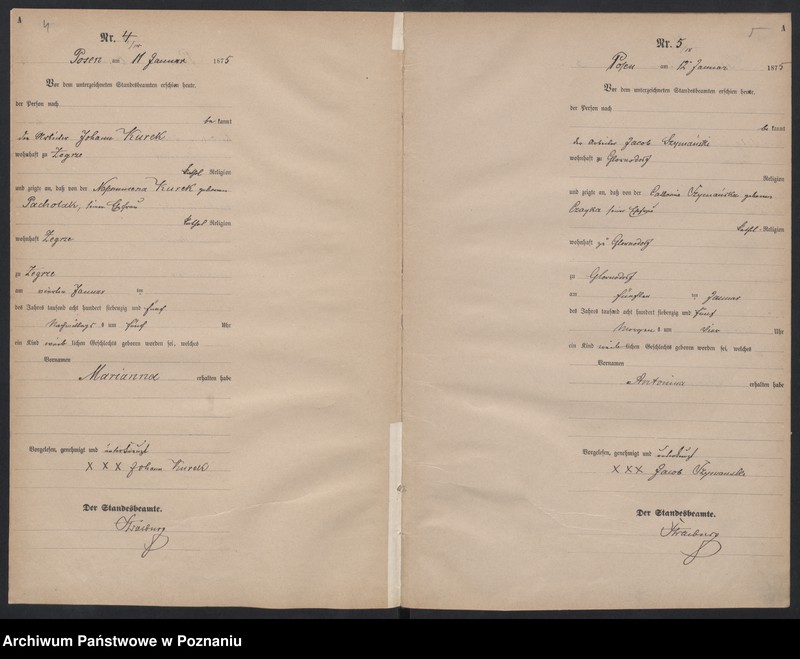 A 4
Nr. 4
Posen am 11 Januar 1875
Vor dem unterzeichneten Standesbeamten erschien heute,
der Person nach
be kannt
der Arbeiter Johann Kurek
wohnhaft zu Zegrze
kathol. Religion
und zeigte an, daß von der Nepomucena Kurek geborenen
Pacholak, seiner Ehefrau
kathol. Religion
wohnhaft Zegrze
zu Zegrze
am vierten Januar des
des Jahres tausend acht hundert siebenzig und fünf
Nachmittags um fünf Uhr
ein Kind weib lichen Geschlechts geboren worden sei, welches
Vornamen
Marianna erhalten habe
Vorgelesen, genehmigt und unterkreuzt
X X X Johann Kurek
Der Standesbeamte.
5 A
Nr. 5
Posen am 12 Januar 1875
Vor dem unterzeichneten Standesbeamten erschien heute,
der Person nach
be kannt
der Arbeiter Jacob Szymański
wohnhaft zu
Religion
und zeigte an, daß von der Szymańska geborenen
seiner Ehefrau
kathol. Religion
wohnhaft zu
zu
am fünften des Januar
des Jahres tausend acht hundert siebenzig und fünf
Morgens um vier Uhr
ein Kind weib lichen Geschlechts geboren worden sei, welches
Vornamen
Antonina erhalten habe
Vorgelesen, genehmigt und unterkreuzt
X X X Jacob Szymanski
Der Standesbeamte.
Archiwum Państwowe w Poznaniu